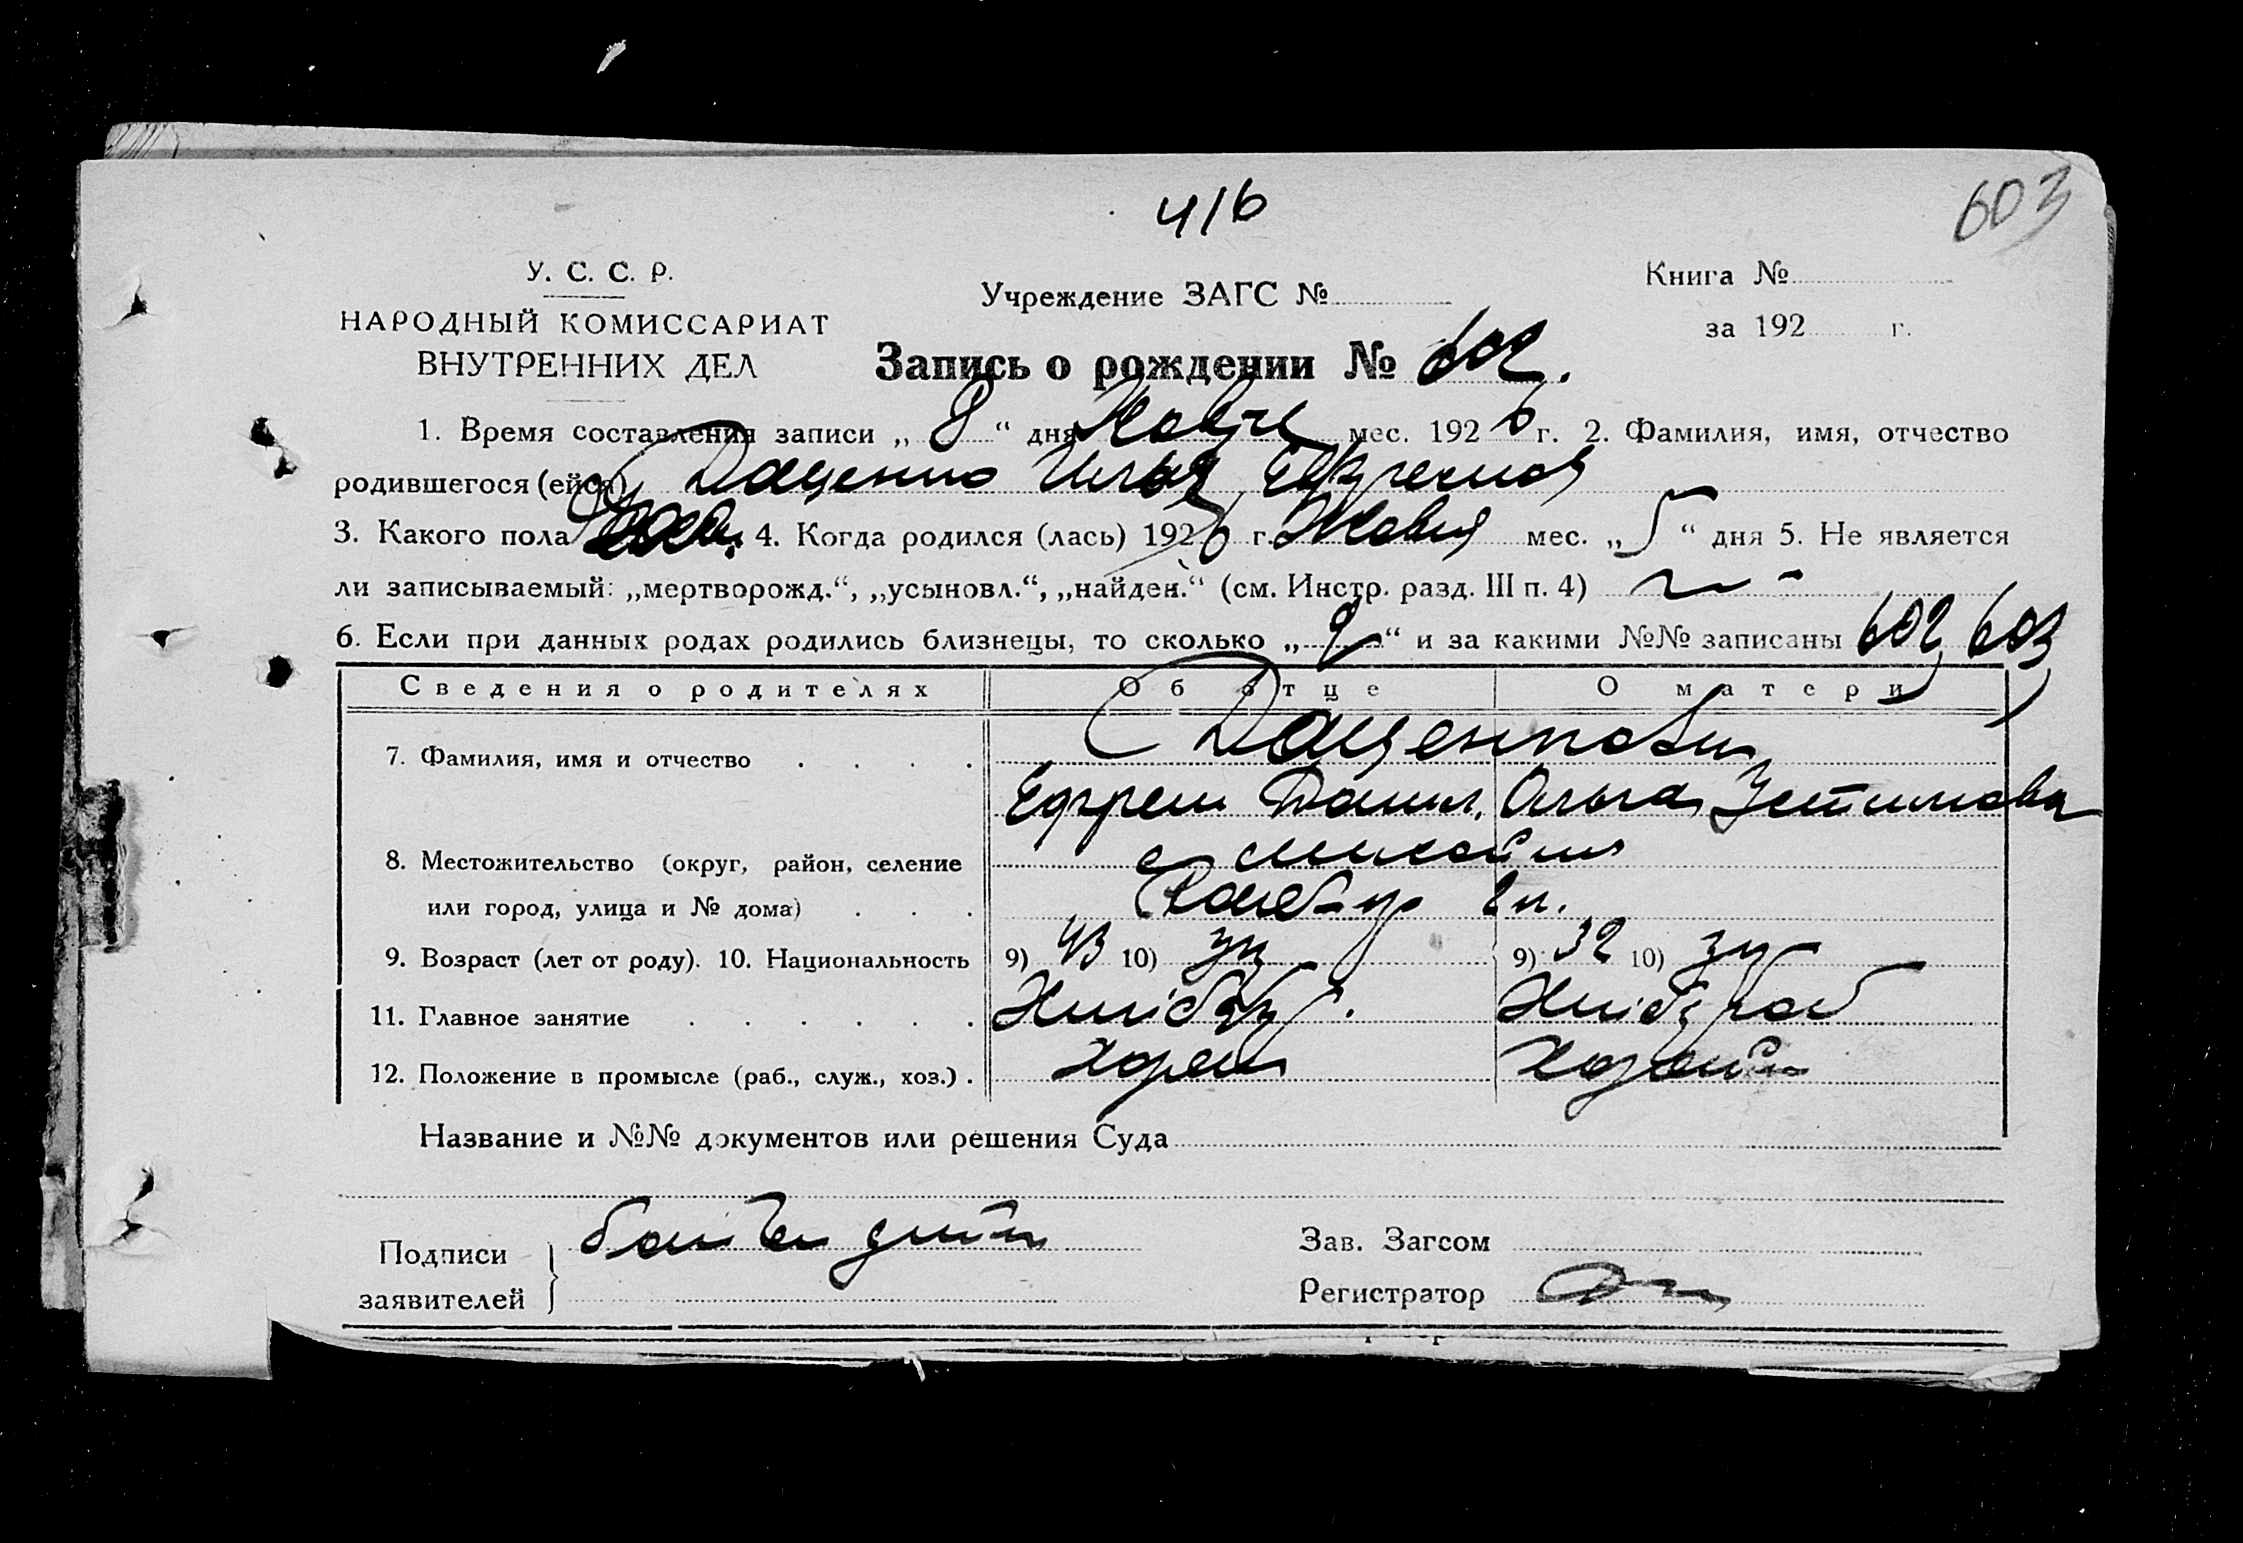 416
603
У. С. С. Р.
НАРОДНЫЙ КОМИССАРИАТ
ВНУТРЕННИХ ДЕЛ
Учреждение ЗАГС №
Книга №
за 192 г.
Запись о рождении № 602.
1. Время составления записи „ 8 “ дня мес. 1926 г. 2. Фамилия, имя, отчество
родившегося (ейся) Даценко Илья
3. Какого пола 4. Когда родился (лась) 1926 г. мес. „ 5 “ дня 5. Не является
ли записываемый: „мертворожд.“, „усыновл.“, „найден.“ (см. Инстр. разд. III п. 4)
6. Если при данных родах родились близнецы, то сколько „ 2 “ и за какими №№ записаны 602, 603
Сведения о родителях Об отце О матери
7. Фамилия, имя и отчество . . . . Даценкови
Ефрем Данил. Ольга Устимовна
8. Местожительство (округ, район, селение
или город, улица и № дома) . . .
9. Возраст (лет от роду). 10. Национальность 9) 43 10) ук 9) 32 10) ук
11. Главное занятие . . . . . . Хлібороб. Хлібороб
12. Положение в промысле (раб., служ., хоз.) . Хозяин
Название и №№ документов или решения Суда
Подписи
заявителей
Зав. Загсом
Регистратор